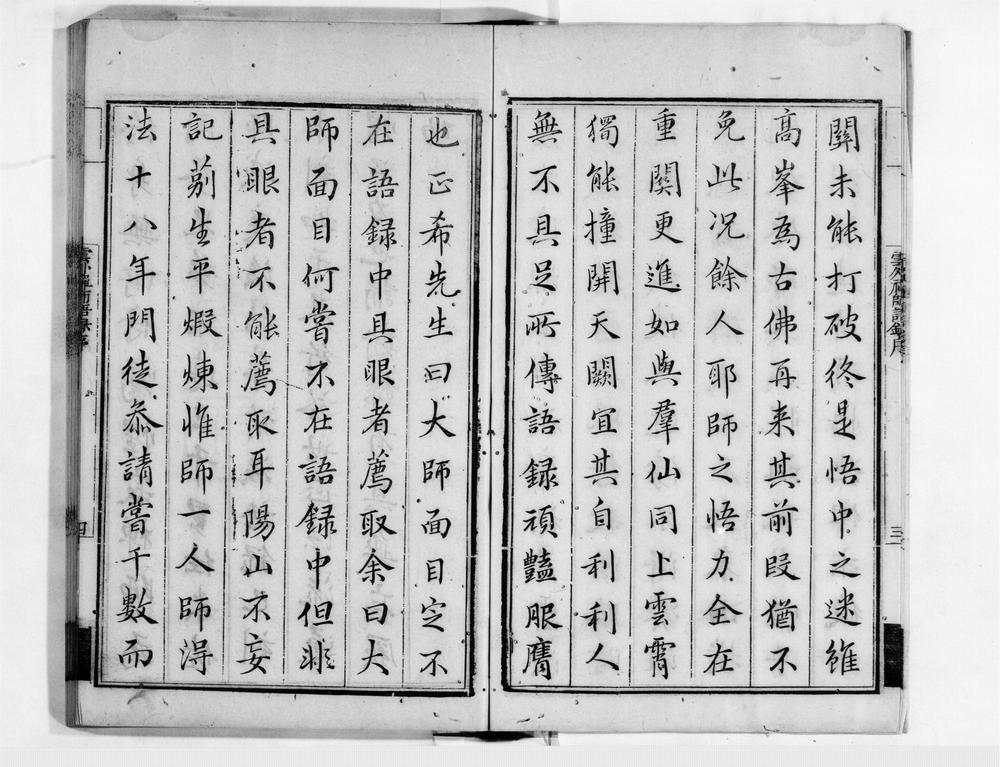 關未能打破終是悟中之迷雖
高峯為古佛再来其前叚猶不
免此况餘人耶師之悟力全在
重関更進如與羣仙同上雲霄
獨能撞開天闕宜其自利利人
無不具足所傳語録頑豔服膺
也正希先生曰大師面目定不
在語録中具眼者薦取余曰大
師面目何嘗不在語録中但非
具眼者不能薦取耳陽山不妄
記莂生平煆煉惟師一人師得
法十八年門徒叅請嘗千數而
三
四